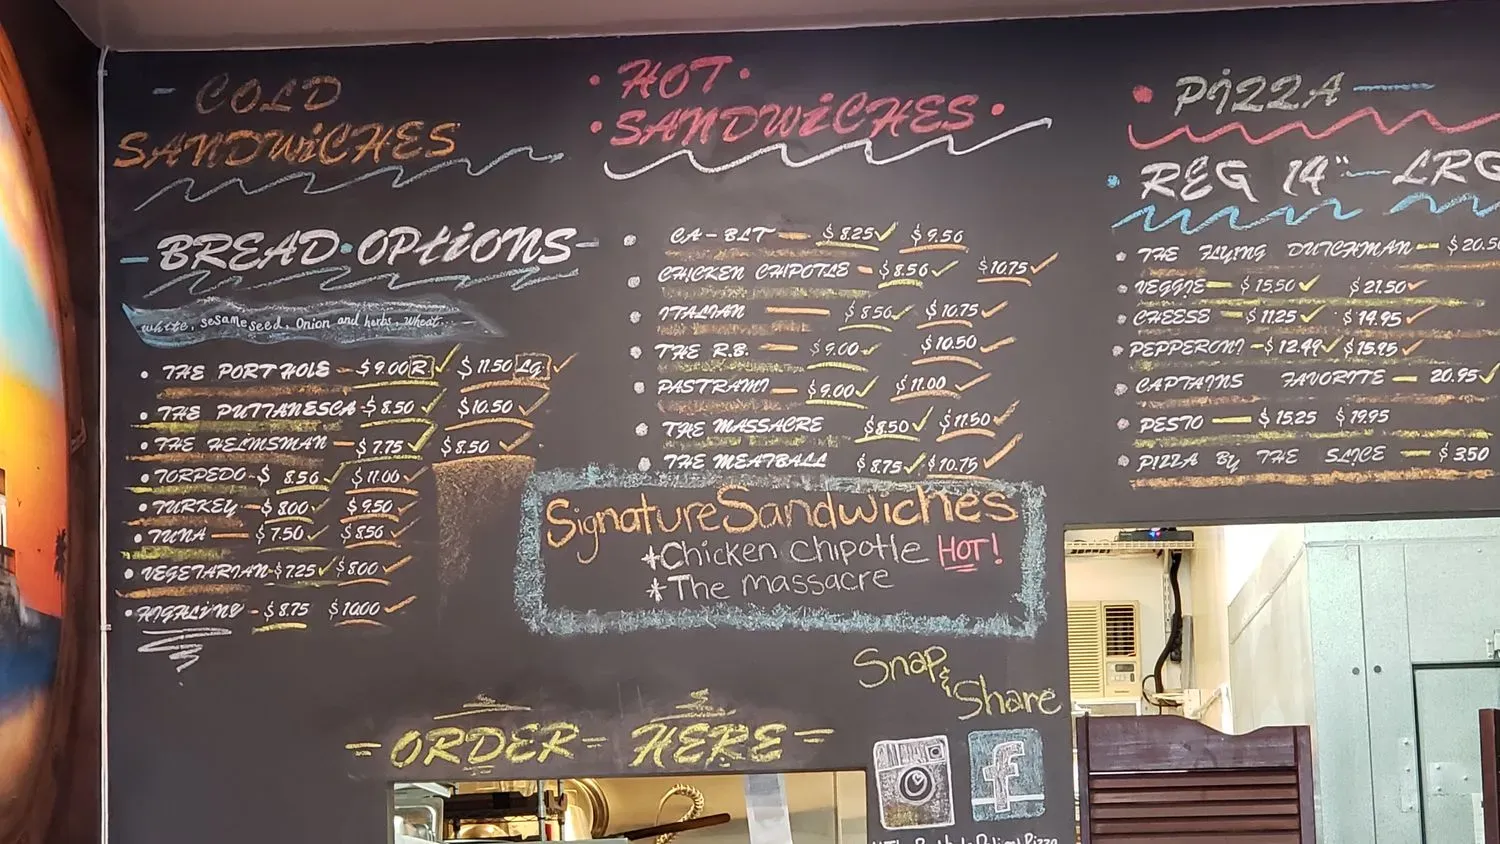 - COLD
SANDWiCHES
- BREAD • OPtiONS -
white, sesameseed, Onion and herbs, wheat...
• THE PORTHOLE - $9.00 R. $11.50 Lg.
• THE PUTTANESCA - $8.50 $10.50
• THE HELMSMAN - $7.75 $8.50
• TORPEDO - $8.50 $11.00
• TURKEY - $8.00 $9.50
• TUNA - $7.50 $8.50
• VEGETARIAN - $7.25 $8.00
• HIGHLiNE - $8.75 $10.00
• HOT •
• SANDWiCHES •
• CA-BLT - $8.25 $9.50
• CHICKEN CHIPOTLE - $8.50 $10.75
• ITALIAN - $8.50 $10.75
• THE R.B. - $9.00 $10.50
• PASTRAMI - $9.00 $11.00
• THE MASSACRE $8.50 $11.50
• THE MEATBALL $8.75 $10.75
Signature Sandwiches
*Chicken chipotle HOT!
*The massacre
• PiZZA -
• REG 14" - LRG
• THE FLYING DUTCHMAN - $20.50
• VEGGIE - $15.50 $21.50
• CHEESE - $11.25 $14.95
• PEPPERONI - $12.49 $15.95
• CAPTAINS FAVORITE - 20.95
• PESTO - $15.25 $19.95
• PIZZA BY THE SLICE - $3.50
Snap &
Share
= ORDER - HERE =
f